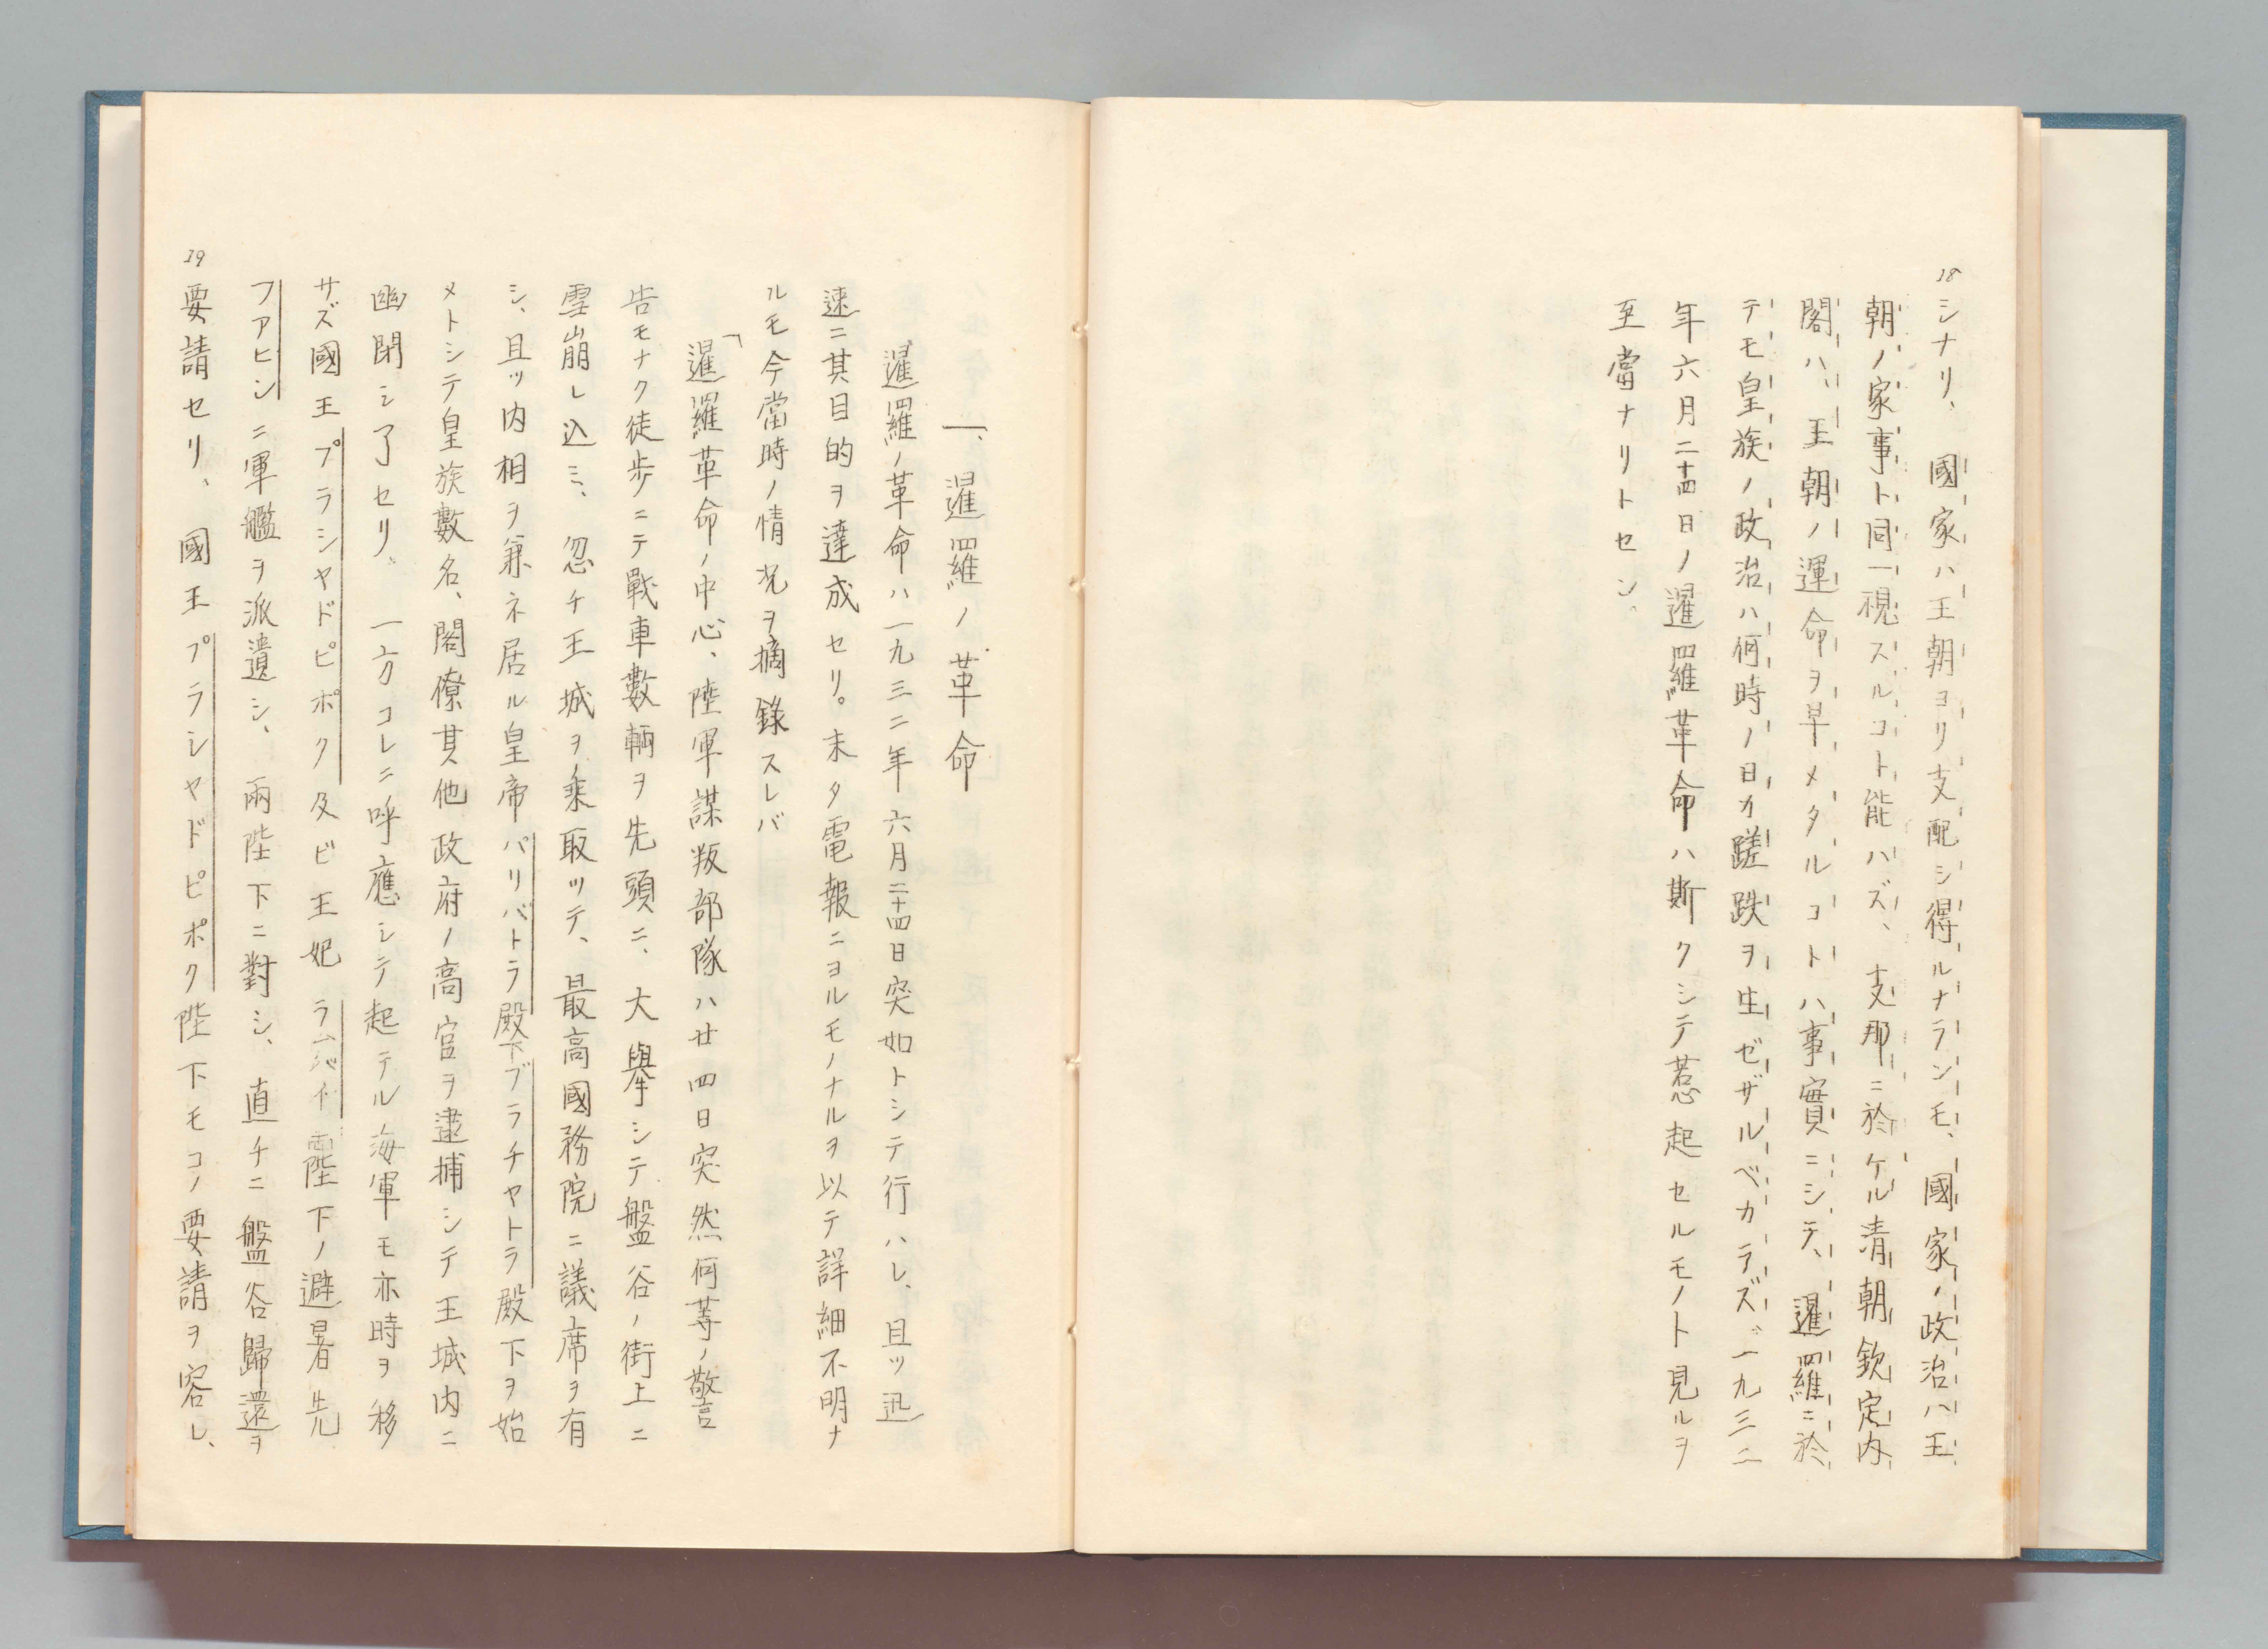 18
シナリ、國家ハ王朝ヨリ支配シ得ルナランモ、國家ノ政治ハ王
朝ノ家事ト同一視スルコト能ハズ、支那ニ於ケル清朝欽定内
閣ハ、王朝ノ運命ヲ早メタルコトハ事實ニシテ、暹羅ニ於
テモ皇族ノ政治ハ何時ノ日カ蹉跌ヲ生ゼザルベカラズ、一九三二
年六月二十四日ノ暹羅革命ハ斯クシテ惹起セルモノト見ルヲ
至當ナリトセン、
一、暹羅ノ革命
暹羅ノ革命ハ一九三二年六月二十四日突如トシテ行ハレ、且ツ迅
速ニ其目的ヲ達成セリ。未タ電報ニヨルモノナルヲ以テ詳細不明ナ
ルモ今當時ノ情况ヲ摘錄スレバ
「暹羅革命ノ中心、陸軍謀叛部隊ハ廿四日突然何等ノ警
告モナク徒歩ニテ戰車數輌ヲ先頭ニ、大擧シテ盤谷ノ街上ニ
雪崩レ込ミ、忽チ王城ヲ乘取ッテ、最高國務院ニ議席ヲ有
シ、且ツ内相ヲ兼ネ居ル皇帝パリバトラ殿下ブラチヤトラ殿下ヲ始
メトシテ皇族數名、閣僚其他政府ノ高官ヲ逮捕シテ王城内ニ
幽閉シ了セリ、一方コレニ呼應シテ起テル海軍モ亦時ヲ移
サズ國王プラシヤドピポク及ビ王妃ラムバイ両陛下ノ避暑先
フアヒンニ軍艦ヲ派遣シ、兩陛下ニ對シ、直チニ盤谷歸還ヲ
19
要請セリ、國王プラシヤドピポク陛下モコノ要請ヲ容レ、